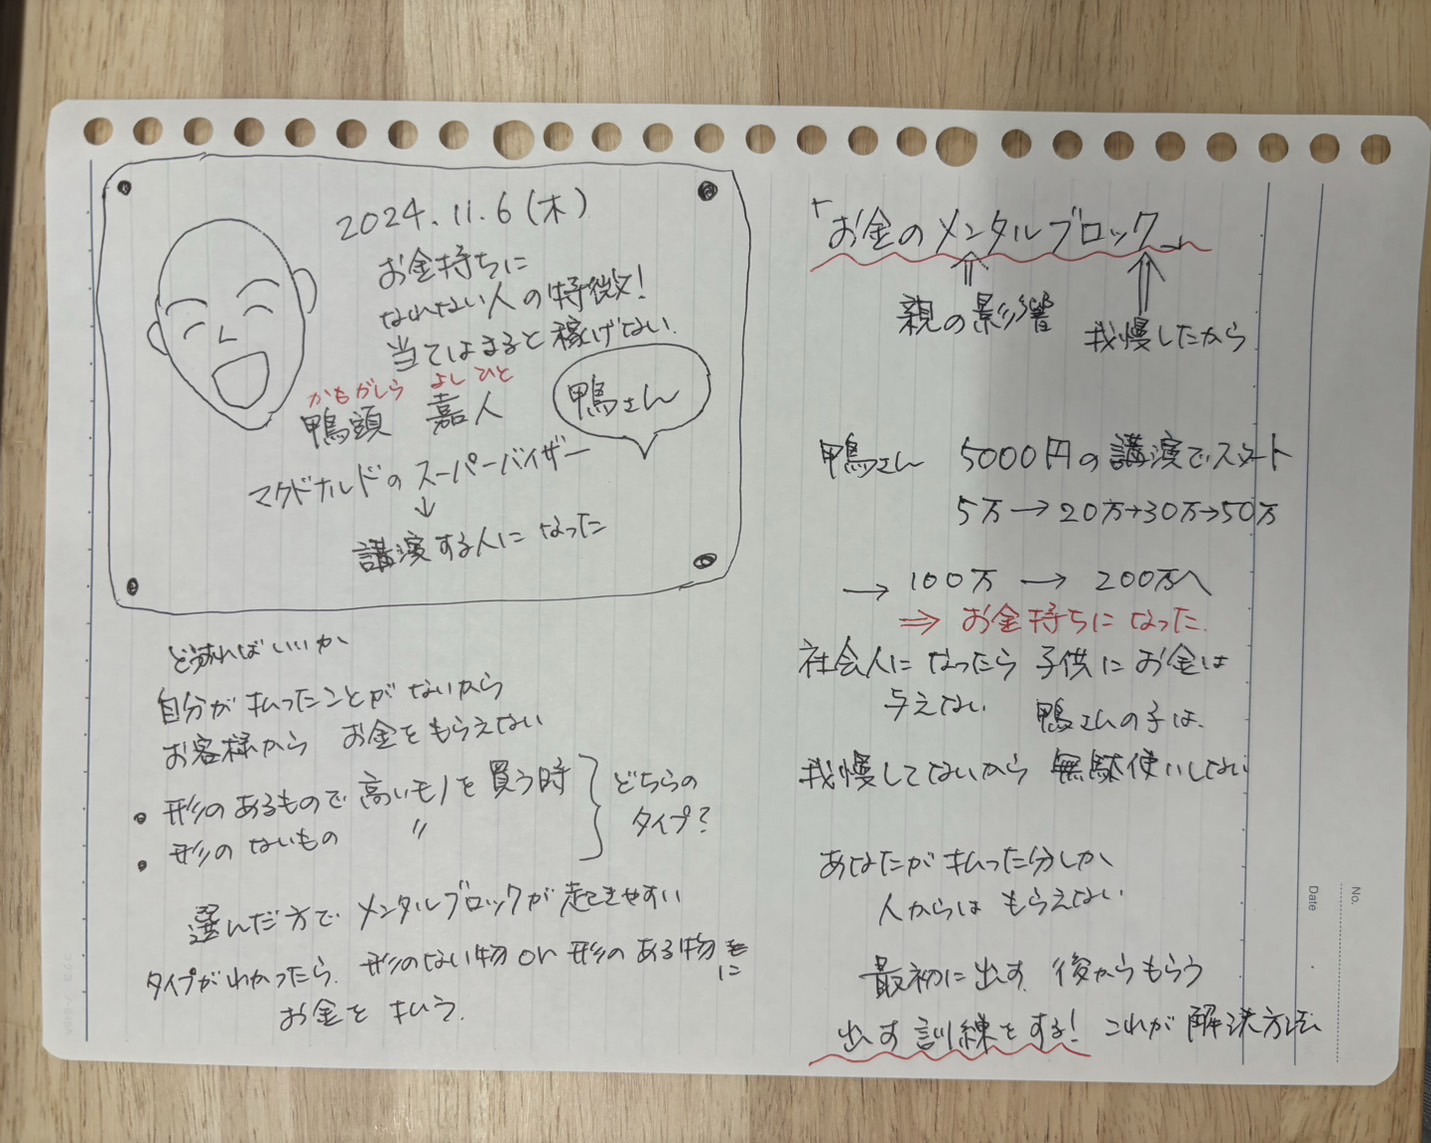 2024.11.6(木)
お金持ちに
なれない人の特徴!
当てはまると稼げない.
かもがしら よしひと
鴨頭 嘉人
鴨さん
マクドナルドのスーパーバイザー
↓
講演する人になった
どうすればいいか
自分が払ったことがないから
お客様から お金をもらえない
• 形のあるもので高いモノを買う時
• 形のないもの 〃
どちらの
タイプ?
選んだ方でメンタルブロックが起きやすい
タイプがわかったら. 形のない物 or 形のある物
に
お金を払う.
「お金のメンタルブロック」
⇑ ⇑
親の影響 我慢したから
鴨さん 5000円の講演でスタート
5万→20万→30万→50万
→ 100万 → 200万へ
⇒ お金持ちになった.
社会人になったら 子供にお金は
与えない 鴨さんの子は、
我慢してないから 無駄使いしない
あなたが払った分しか
人からは もらえない
最初に出す 後からもらう
出す訓練をする! これが解決方法
No.
Date